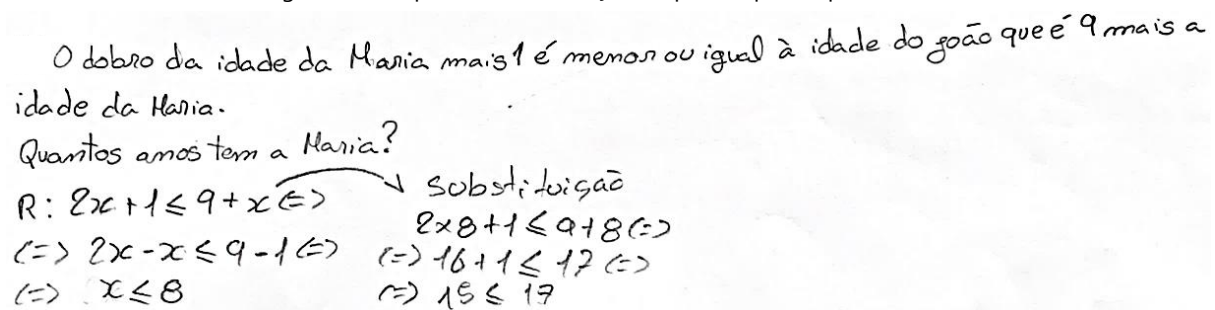 O dobro da idade da Maria mais 1 é menor ou igual à idade do joão que é 9 mais a
idade da Maria.
Quantos anos tem a Maria?
R: 2x + 1 ≤ 9 + x (=) Substituição
2x8+1 ≤ 9+8 (=)
(=) 2x - x ≤ 9 - 1 (=) (=) 16+1 ≤ 17 (=)
(=) x ≤ 8 (=) 15 ≤ 17